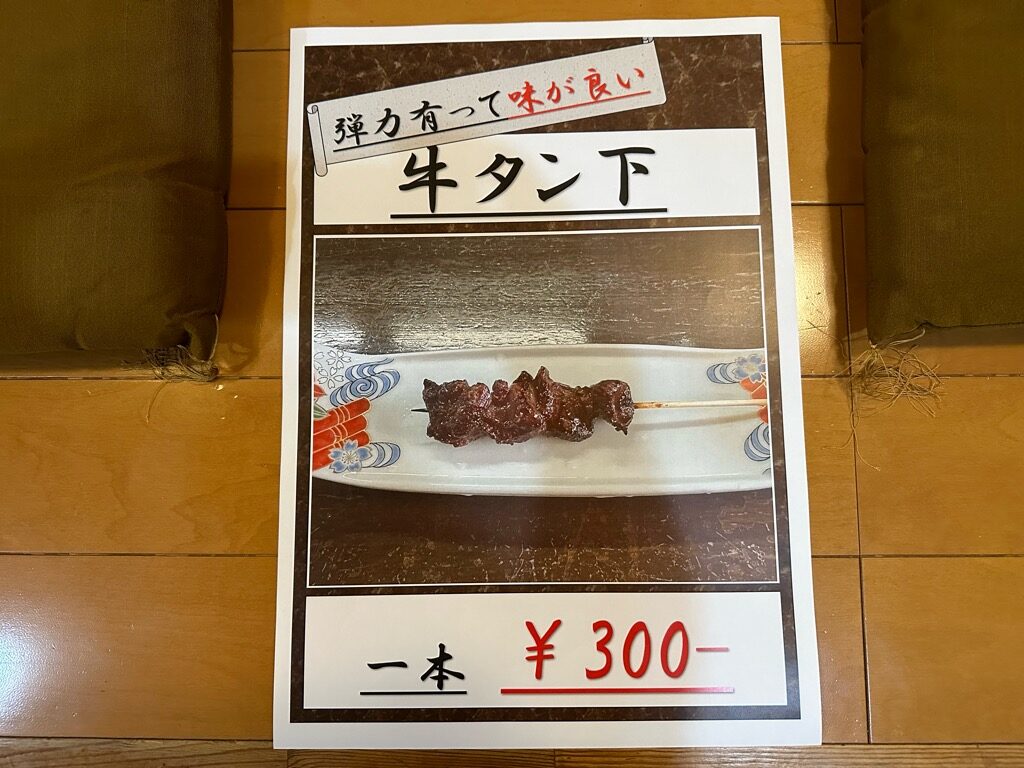 弾力有って味が良い
牛タン下
一本 ¥300-